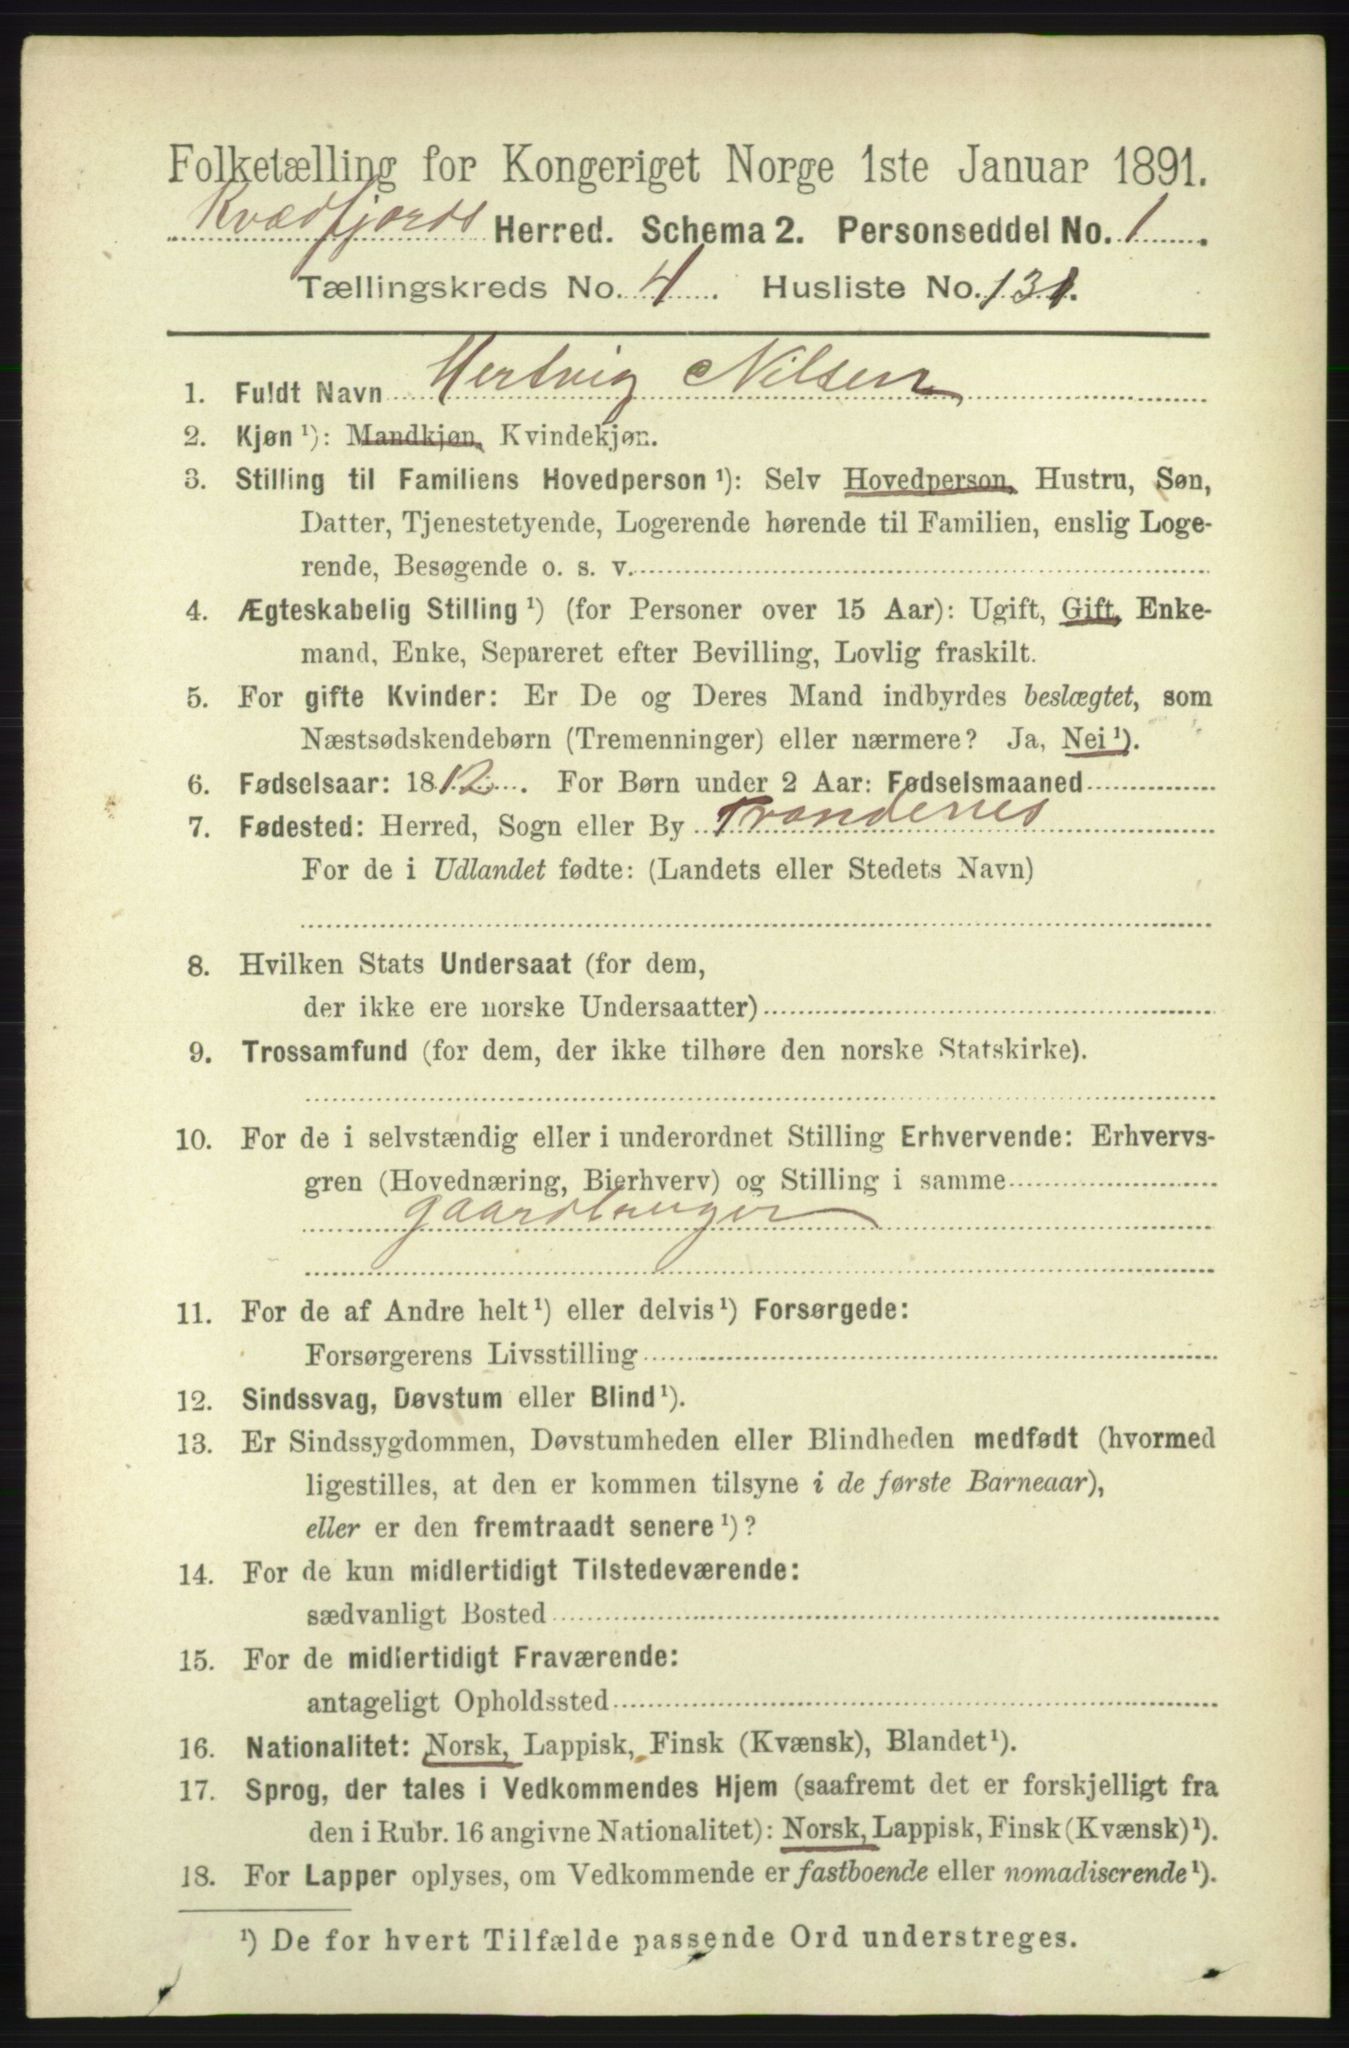 Folketælling for Kongeriget Norge 1ste Januar 1891.
Kvædfjords Herred. Schema 2. Personseddel No. 1.
Tællingskreds No. 4. Husliste No. 131.
1. Fuldt Navn Hertvig Nilsen
2. Kjøn ¹): Mandkjøn, Kvindekjøn.
3. Stilling til Familiens Hovedperson ¹): Selv Hovedperson, Hustru, Søn,
Datter, Tjenestetyende, Logerende hørende til Familien, enslig Loge-
rende, Besøgende o. s. v.
4. Ægteskabelig Stilling ¹) (for Personer over 15 Aar): Ugift, Gift, Enke-
mand, Enke, Separeret efter Bevilling, Lovlig fraskilt.
5. For gifte Kvinder: Er De og Deres Mand indbyrdes beslægtet, som
Næstsødskendebørn (Tremenninger) eller nærmere? Ja, Nei ¹).
6. Fødselsaar: 1812. For Børn under 2 Aar: Fødselsmaaned
7. Fødested: Herred, Sogn eller By Trondenes
For de i Udlandet fødte: (Landets eller Stedets Navn)
8. Hvilken Stats Undersaat (for dem,
der ikke ere norske Undersaatter)
9. Trossamfund (for dem, der ikke tilhøre den norske Statskirke).
10. For de i selvstændig eller i underordnet Stilling Erhvervende: Erhvervs-
gren (Hovednæring, Bierhverv) og Stilling i samme
gaardbruger
11. For de af Andre helt ¹) eller delvis ¹) Forsørgede:
Forsørgerens Livsstilling
12. Sindssvag, Døvstum eller Blind ¹).
13. Er Sindssygdommen, Døvstumheden eller Blindheden medfødt (hvormed
ligestilles, at den er kommen tilsyne i de første Barneaar),
eller er den fremtraadt senere ¹)?
14. For de kun midlertidigt Tilstedeværende:
sædvanligt Bosted
15. For de midlertidigt Fraværende:
antageligt Opholdssted
16. Nationalitet: Norsk, Lappisk, Finsk (Kvænsk), Blandet ¹).
17. Sprog, der tales i Vedkommendes Hjem (saafremt det er forskjelligt fra
den i Rubr. 16 angivne Nationalitet): Norsk, Lappisk, Finsk (Kvænsk) ¹).
18. For Lapper oplyses, om Vedkommende er fastboende eller nomadiserende ¹).
¹) De for hvert Tilfælde passende Ord understreges.